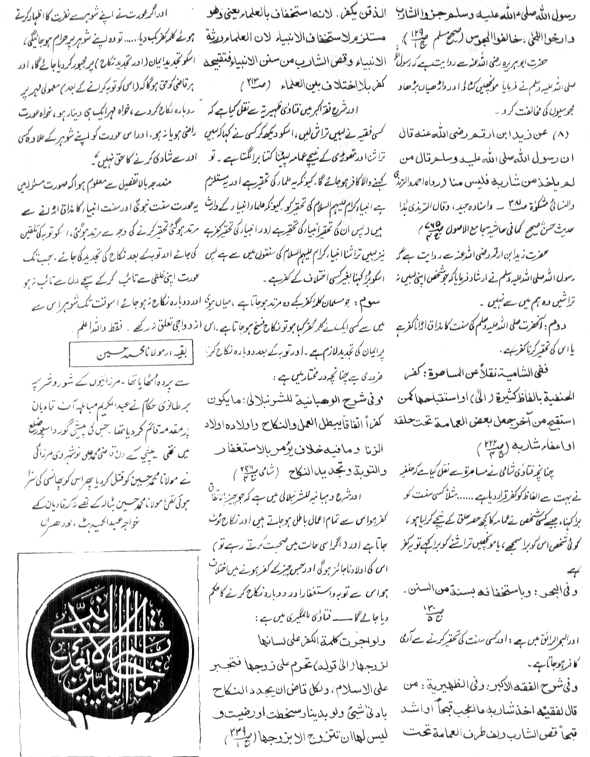 رسول اللہ صلی اللہ علیہ وسلم جزوا الشارب
وارخوا اللحی، خالفوا المجوس (صحیح مسلم ص۱۲۹ ج۱)
حضرت ابوہریرہ رضی اللہ عنہ سے روایت ہے کہ رسول اللہ
صلی اللہ علیہ وسلم نے فرمایا مونچھیں کٹاؤ اور داڑھیاں بڑھاؤ
مجوسیوں کی مخالفت کرو۔
(۸) عن زید ابن ارقم رضی اللہ عنہ قال
ان رسول اللہ صلی اللہ علیہ وسلم قال من
لم یاخذ من شاربہ فلیس منا (رواہ احمد والترمذی
والنسائی مشکوٰۃ ص۳۸۱ ۔ واسنادہ جید، وقال الترمذی ہذا
حدیث حسن صحیح کمافی حاشیہ جامع الاصول ص۷۶۵ ج۴)
حضرت زید بن ارقم رضی اللہ عنہ سے روایت ہے کہ
رسول اللہ صلی اللہ علیہ وسلم نے ارشاد فرمایا کہ جو شخص اپنی لبیں نہ
تراشیں وہ ہم میں سے نہیں۔
دوم: آنحضرت صلی اللہ علیہ وسلم کی سنت کا مذاق اڑانا کفر ہے
یا اس کی تحقیر کرنا کفر ہے۔
ففی الشامیۃ نقلاً عن المسامرۃ: کفر
الحنفیۃ بالفاظ کثیرۃ (الی) او استقباحہا کمن
استقبح من آخر جعل بعض العمامۃ تحت حلقہ
او اعفاء شاربہ (ص۲۲۲ ج۴)
چنانچہ فتاویٰ شامی نے مسامرہ سے نقل کیا ہے کہ حنفیہ
نے بہت سے الفاظ کو کفر قرار دیا ہے...... مثلاً کسی سنت کو
برا کہنا، جیسے کسی شخص نے عمامہ کا کچھ حصہ حلق کے نیچے کر لیا ہو،
کوئی شخص اس کو برا سمجھے، یا مونچھیں تراشنے کو برا کہے تو یہ کفر
ہے
وفی البحر: وباستخفافہ بسنۃ من السنن۔
(ص۱۳۰ ج۵)
اور البحر الرائق میں ہے: اور کسی سنت کی تحقیر کرنے سے آدمی
کافر ہو جاتا ہے۔
وفی شرح الفقہ الاکبر: وفی الظہیریۃ: من
قال لفقیہ اخذ شاربہ ما اعجب قبحاً او اشد
قبحاً قص الشارب ولف طرف العمامۃ تحت
الذقن یکفر۔ لانہ استخفاف بالعلماء یعنی وھو
مستلزم لاستخفاف الانبیاء لان العلماء ورثۃ
الانبیاء وقص الشارب من سنن الانبیاء فتقبیحہ
کفر بلا اختلاف بین العلماء (ص۲۱۳)
اور شرح فقہ اکبر میں فتاویٰ ظہیریہ سے نقل کیا ہے کہ
کسی فقیہ نے لبیں تراش لیں، اسکو دیکھ کر کسی نے کہا کہ لبیں
تراشنا اور ٹھوڑی کے نیچے عمامہ لپیٹنا کتنا برا لگتا ہے۔ تو
کہنے والا کافر ہو جائے گا۔ کیونکہ یہ علماء کی تحقیر ہے، اور یہ مستلزم
ہے انبیاء کرام علیہم السلام کی تحقیر کو، کیونکہ علماء انبیاء کے وارث
ہیں پس ان کی تحقیر انبیاء کی تحقیر ہے اور انبیاء کی تحقیر کفر ہے
نیز لبیں تراشنا انبیاء کرام علیہم السلام کی سنتوں میں سے ہے پس
اسکو برا کہنا بغیر کسی اختلاف کے کفر ہے۔
سوم: جو مسلمان کلمہ کفر بکے وہ مرتد ہو جاتا ہے، میاں بیوی
میں سے کسی ایک نے کلمہ کفر کہا ہو تو نکاح فسخ ہو جاتا ہے، اس
پر ایمان کی تجدید لازم ہے۔ اور توبہ کے بعد دوبارہ نکاح کرنا
ضروری ہے چنانچہ در مختار میں ہے:
وفی شرح الوھبانیۃ للشرنبلالی: ما یکون
کفراً اتفاقاً یبطل العمل والنکاح واولادہ اولاد
الزنا، وما فیہ خلاف یؤمر بالاستغفار
والتوبۃ وتجدید النکاح (شامی ص۲۴۶ ج۴)
اور شرح وہبانیہ للشرنبلالی میں ہے کہ جو چیز بالاتفاق
کفر ہو اس سے تمام اعمال باطل ہو جاتے ہیں اور نکاح ٹوٹ
جاتا ہے اور (اگر اسی حالت میں صحبت کرتے رہے تو)
اس کی اولاد ناجائز ہوگی اور جس چیز کے کفر ہونے میں اختلاف
ہو اس سے توبہ واستغفار اور دوبارہ نکاح کرنے کا حکم
دیا جائے گا۔ فتاویٰ عالمگیری میں ہے:
ولو اجرت کلمۃ الکفر علی لسانہا
لزوجہا (الی قولہ) تحرم علی زوجہا فتجبر
علی الاسلام، ولکل قاض ان یجدد النکاح
بادنی شیئ ولو بدینار سخطت او رضیت و
لیس لہا ان تتزوج الا بزوجہا (ص۳۳۹ ج۱)
اور اگر عورت نے اپنے شوہر سے نفرت کا اظہار کرتے
ہوئے کلمہ کفر بک دیا، تو وہ اپنے شوہر پر حرام ہو جائیگی،
اسکو تجدید ایمان (اور تجدید نکاح) پر مجبور کر دیا جائے گا، اور
ہر قاضی کو حق ہوگا کہ (اس کو توبہ کرانے کے بعد) معمولی مہر پر
دوبارہ نکاح کر دے، خواہ مہر ایک ہی دینار ہو، خواہ عورت
راضی ہو یا نہ ہو، اور اس عورت کو اپنے شوہر کے علاوہ کسی
اور سے شادی کرنے کا حق نہیں"
مندرجہ بالا تفصیل سے معلوم ہوا کہ صورت مسئولہ میں
یہ عورت سنت نبوی اور سنت انبیاء کا مذاق اڑانے سے
مرتد ہو گئی تحقیر کرنے کی وجہ سے مرتد ہو گئی، اسکو توبہ کی تلقین
کی جائے اور توبہ کے بعد نکاح کی تجدید کی جائے۔ جب تک
عورت اپنی غلطی سے تائب کر کے سچے دل سے تائب نہ ہو
اور دوبارہ نکاح نہ ہو جائے اسوقت تک شوہر اس سے
ازدواجی تعلق نہ رکھے۔ فقط واللہ اعلم
بقیہ: مولانا محمد حسین
سے پردہ اٹھایا تھا۔ مرزائیوں کے شور و شر پر
برطانوی حکام نے عبدالکریم مباہلہ آف قادیان
پر مقدمہ قائم کر دیا تھا، جس کی پیش گورداسپور ضلع
میں تھی۔ پیشی کے دن قاضی محمد علی نوشہروی مرزائی
نے مولانا محمد حسین کو قتل کر دیا پھر اس کو پھانسی کی سزا
ہوئی تھی، مولانا محمد حسین بٹالہ کے تھے نہ کہ قادیان کے
خواجہ عبدالحمید بٹ، نور دھراں
انا خاتم النبیین لا نبی بعدی